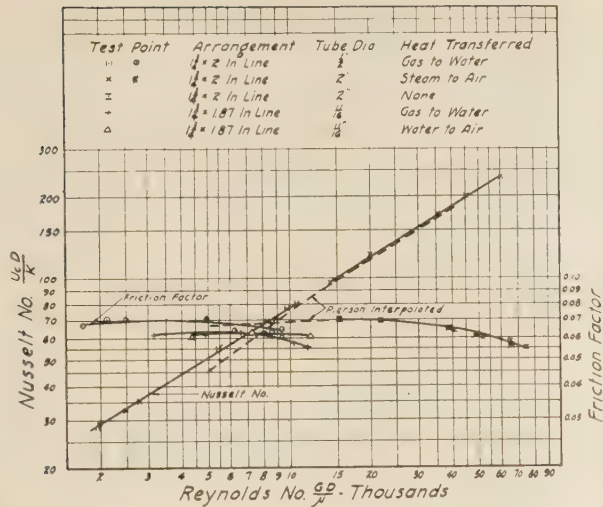 Test Point Arrangement Tube Dia Heat Transferred
1¼ × 2 In Line ½" Gas to Water
1¼ × 2 In Line 2" Steam to Air
1¼ × 2 In Line 2" None
1¼ × 1.87 In Line 11/16" Gas to Water
1¼ × 1.87 In Line 11/16" Water to Air
300
200
150
100
90
80
70
60
50
40
30
20
Nusselt No. UcD/K
Friction Factor
Pierson Interpolated
Nusselt No.
0.10
0.09
0.08
0.07
0.06
0.05
0.06
0.03
Friction Factor
2 3 4 5 6 7 8 9 10 15 20 30 40 50 60 70 80 90
Reynolds No. GD/μ - Thousands